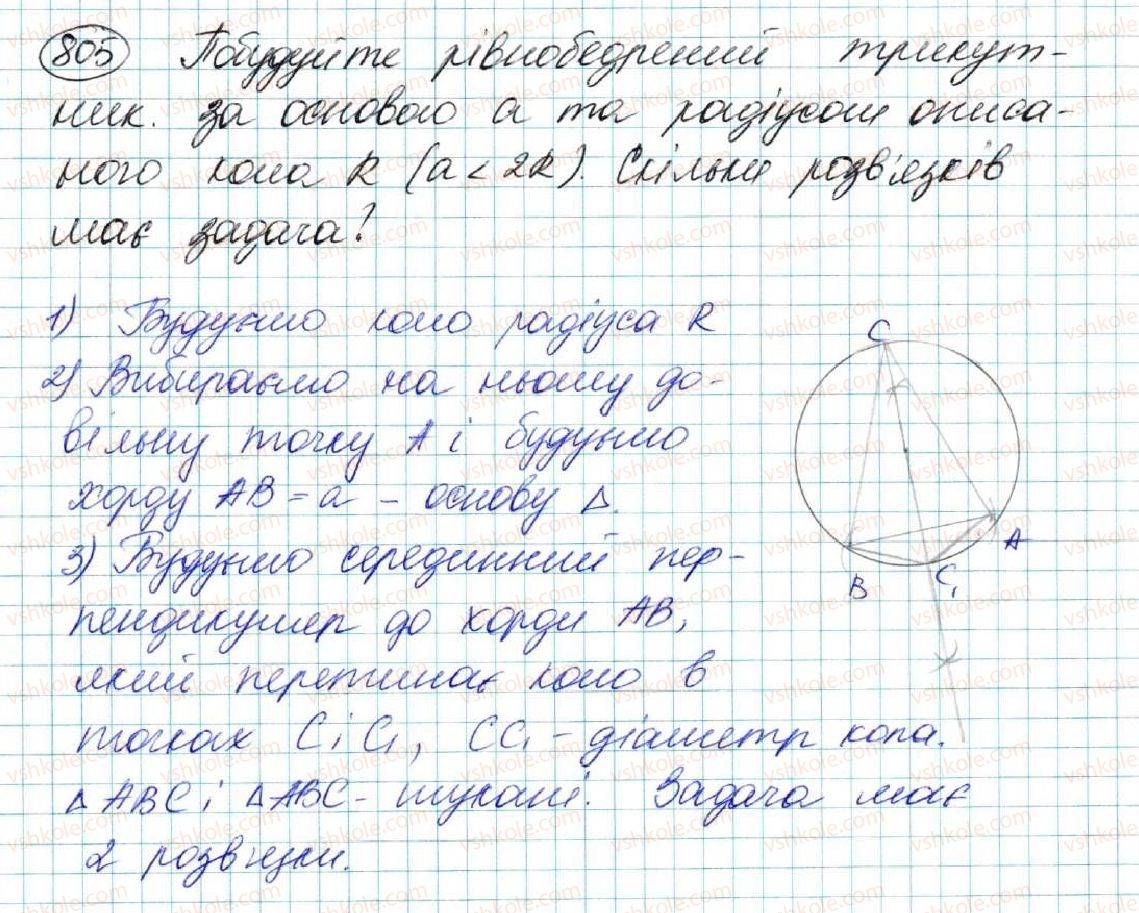 805 Побудуйте рівнобедрений трикут-
ник. за основою a та радіусом описа-
ного кола R (a < 2R). Скільки розв'язків
має задача?
1) Будуємо коло радіуса R
2) Вибираємо на ньому до-
вільну точку A і будуємо
хорду AB = a - основу Δ.
3) Будуємо серединний пер-
пендикуляр до хорди AB,
який перетинає коло в
точках C і C₁, CC₁ - діаметр кола.
Δ ABC і Δ ABC - шукані. Задача має
2 розв'язки.
C
A
B
C₁
vshkole.com